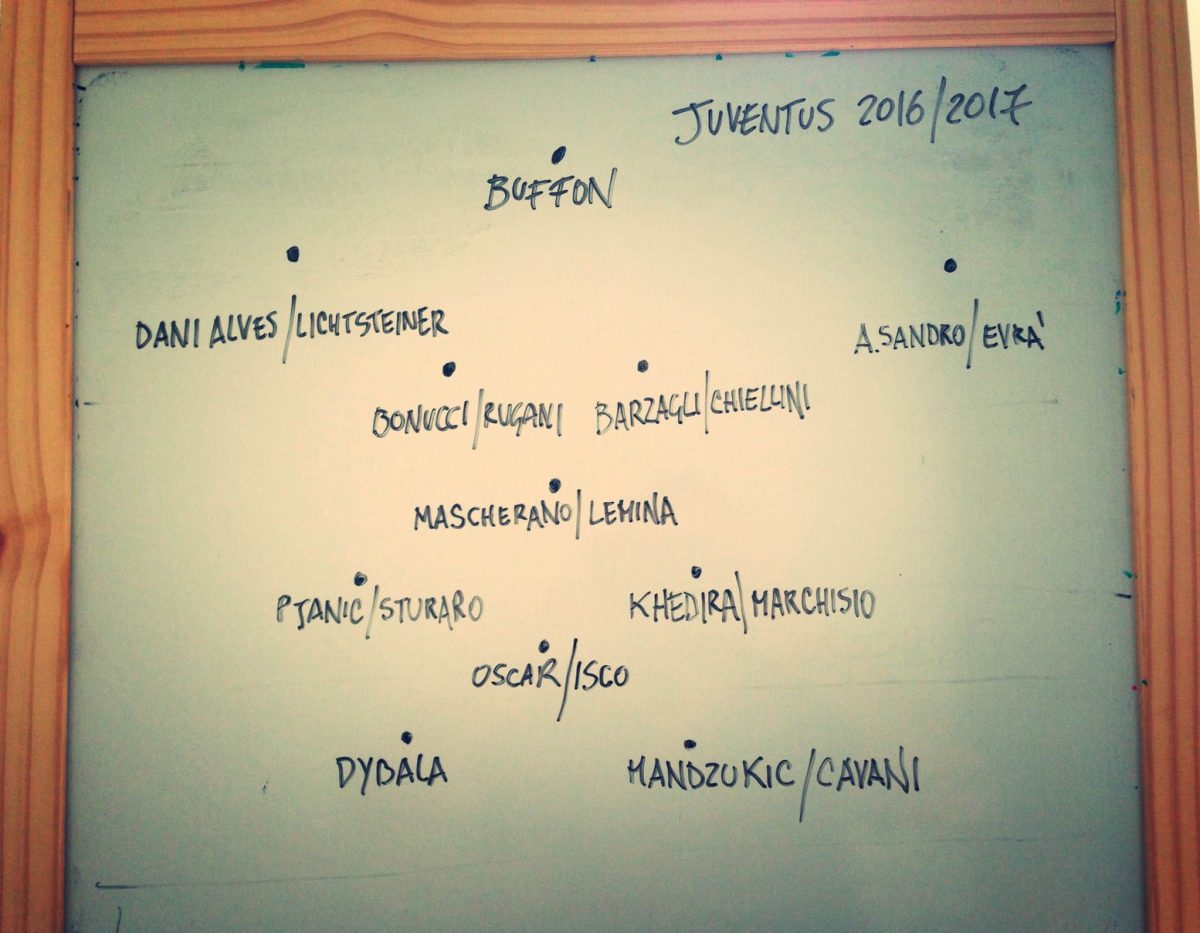 JUVENTUS 2016/2017
BUFFON
DANI ALVES/LICHTSTEINER
A.SANDRO/EVRA'
BONUCCI/RUGANI BARZAGLI/CHIELLINI
MASCHERANO/LEMINA
PJANIC/STURARO KHEDIRA/MARCHISIO
OSCAR/ISCO
DYBALA MANDZUKIC/CAVANI